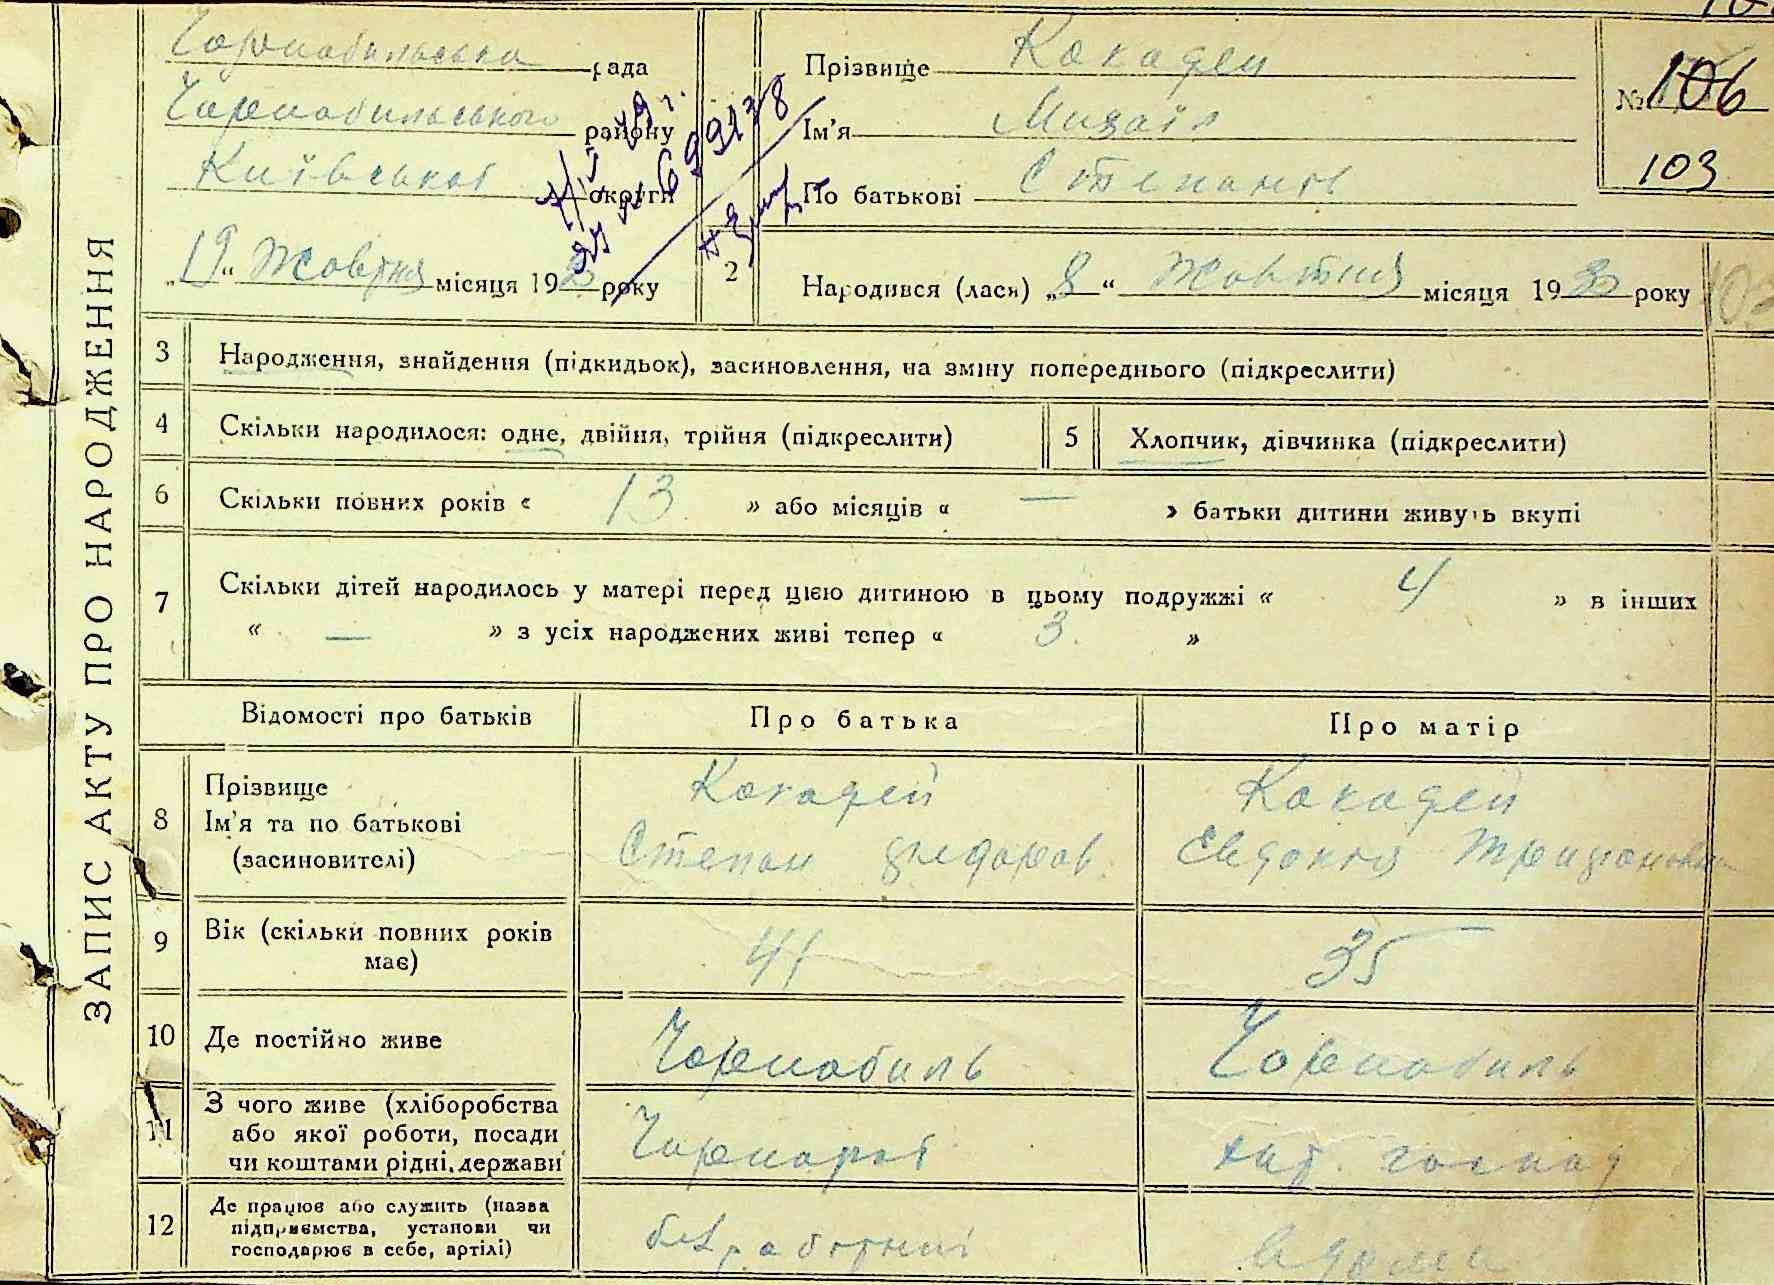 ЗАПИС АКТУ ПРО НАРОДЖЕННЯ
Чорнобильська рада
Чорнобильського району
Київської округи
„19“ Жовтня місяця 1930 року
2
Прізвище Какадей
Ім'я Михаїл
По батькові Степанов
Народився (лася) „8“ Жовтня місяця 1930 року
№ 106
103
3 Народження, знайдення (підкидьок), засиновлення, на зміну попереднього (підкреслити)
4 Скільки народилося: одне, двійня, трійня (підкреслити)
5 Хлопчик, дівчинка (підкреслити)
6 Скільки повних років « 13 » або місяців « — » батьки дитини живуть вкупі
7 Скільки дітей народилось у матері перед цією дитиною в цьому подружжі « 4 » в інших
« — » з усіх народжених живі тепер « 3 »
Відомості про батьків Про батька Про матір
8 Прізвище Какадей Какадей
Ім'я та по батькові Степан Евдокия
(засиновителі)
9 Вік (скільки повних років 41 35
має)
10 Де постійно живе Чорнобиль Чорнобиль
11 З чого живе (хліборобства Чорнороб хат. господ
або якої роботи, посади
чи коштами рідні, держави
12 Де працює або служить (назва
підприємства, установи чи
господарює в себе, артілі) вдома